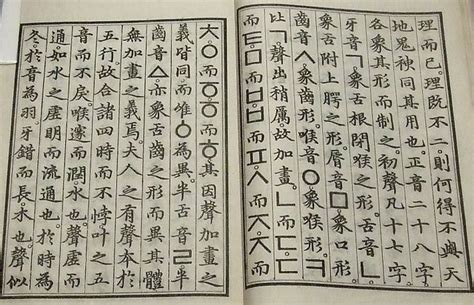 理而已.理既不二.則何得不與天
地鬼神同其用也.正音二十八字.
各象其形而制之.初聲凡十七字.
牙音ㄱ.象舌根閉喉之形.舌音ㄴ.
象舌附上腭之形.脣音ㅁ.象口形.
齒音ㅅ.象齒形.喉音ㅇ.象喉形.ㅋ
比ㄱ.聲出稍厲.故加畫.ㄴ而ㄷ.ㄷ
而ㅌ.ㅁ而ㅂ.ㅂ而ㅍ.ㅅ而ㅈ.ㅈ而
ㅊ.ㅇ而ㆆ.ㆆ而ㅎ.其因聲加畫之
義皆同.而唯ㆁ為異.半舌音ㄹ.半
齒音ㅿ.亦象舌齒之形而異其體.
無加畫之義焉.夫人之有聲本於
五行.故合諸四時而不悖.叶之五
音而不戾.喉邃而潤.水也.聲虛而
通.如水之虛明而流通也.於時為
冬.於音為羽.牙錯而長.木也.聲似